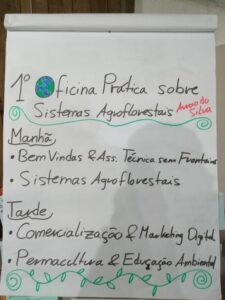 1º Oficina Pratica sobre
Sistemas Agroflorestais
Silva
Manhã
• Bem Vindas & Ass. Técnica sem Fronteiras
• Sistemas Agroflorestais
Tarde
• Comercialização & Marketing Digital
• Permacultura & Educação Ambiental